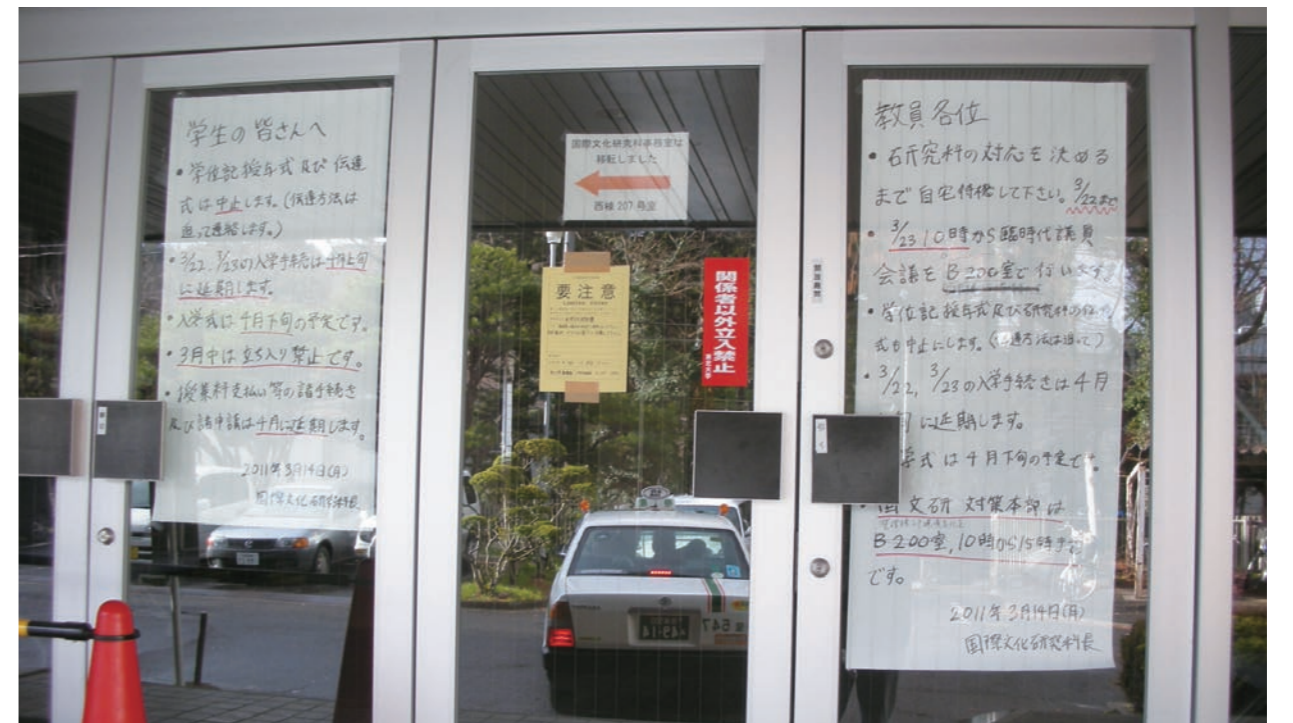 学生の皆さんへ
・学位記授与式及び伝達
式は中止します。(伝達方法は
追って連絡します。)
・3/22、3/23の入学手続は4月上旬
に延期します。
・入学式は4月下旬の予定です。
・3月中は立ち入り禁止です。
・授業料支払い等の諸手続き
及び諸申請は4月に延期します。
2011年3月14日(月)
国際文化研究科長
国際文化研究科事務室は
移転しました
西棟 207 号室
要注意
関係者以外立入禁止
東北大学
教員各位
・研究科の対応を決める
まで自宅待機して下さい。3/22まで
・3/23 10時から臨時代議員
会議をB200室で行います。
・学位記授与式及び研究科の
式も中止にします。(伝達方法は追って)
・3/22, 3/23の入学手続きは4月
旬に延期します。
学式は4月下旬の予定です。
・国文研 対策本部は
B200室,10時から15時まで
です。
2011年3月14日(月)
国際文化研究科長